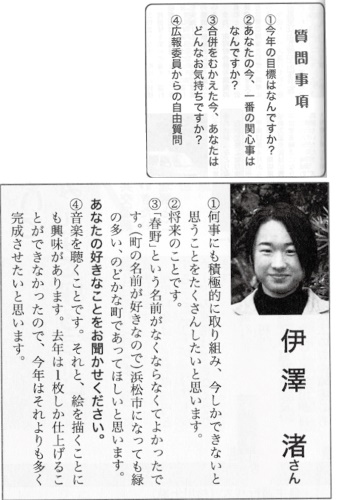 質問事項
①今年の目標はなんですか？
②あなたの今、一番の関心事は
なんですか？
③合併をむかえた今、あなたは
どんなお気持ちですか？
④広報委員からの自由質問
伊澤　渚さん
①何事にも積極的に取り組み、今しかできないと
思うことをたくさんしたいと思います。
②将来のことです。
③「春野」という名前がなくならなくてよかったで
す。(町の名前が好きなので)浜松市になっても緑
の多い、のどかな町であってほしいと思います。
あなたの好きなことをお聞かせください。
④音楽を聴くことです。それと、絵を描くことに
も興味があります。去年は1枚しか仕上げるこ
とができなかったので、今年はそれよりも多く
完成させたいと思います。